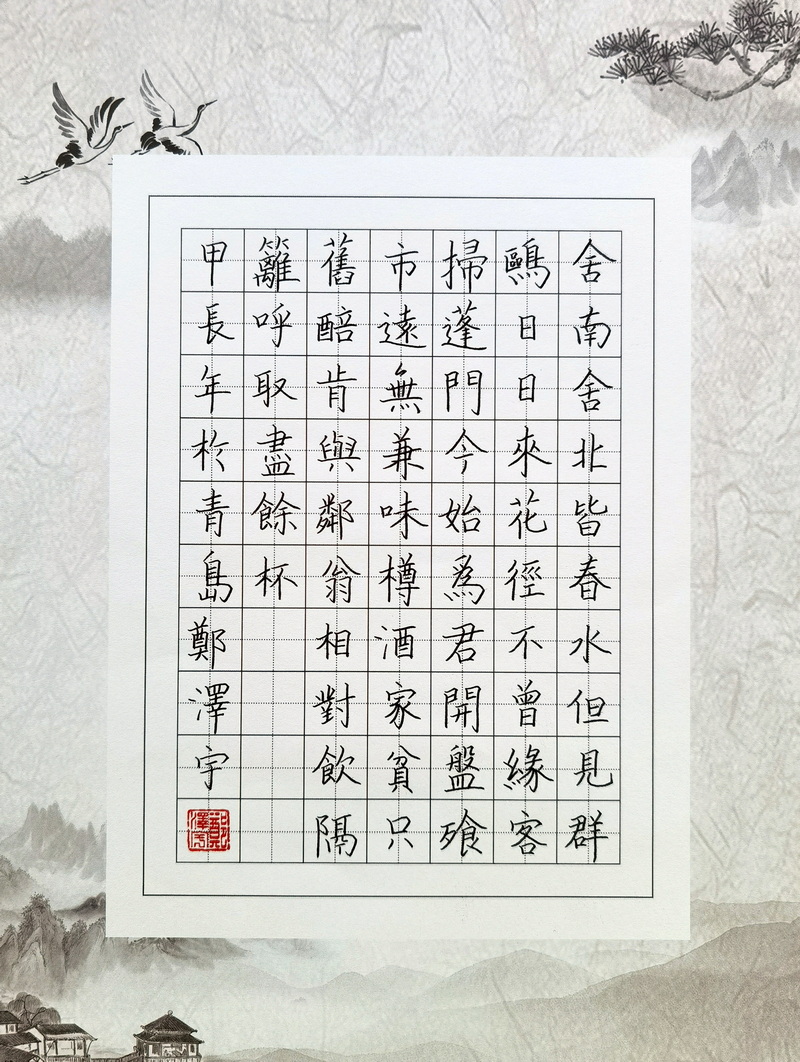 舍南舍北皆春水但見群
鷗日日來花徑不曾緣客
掃蓬門今始爲君開盤飱
市遠無兼味樽酒家貧只
舊醅肯與鄰翁相對飲隔
籬呼取盡餘杯
甲長年於青島鄭澤宇